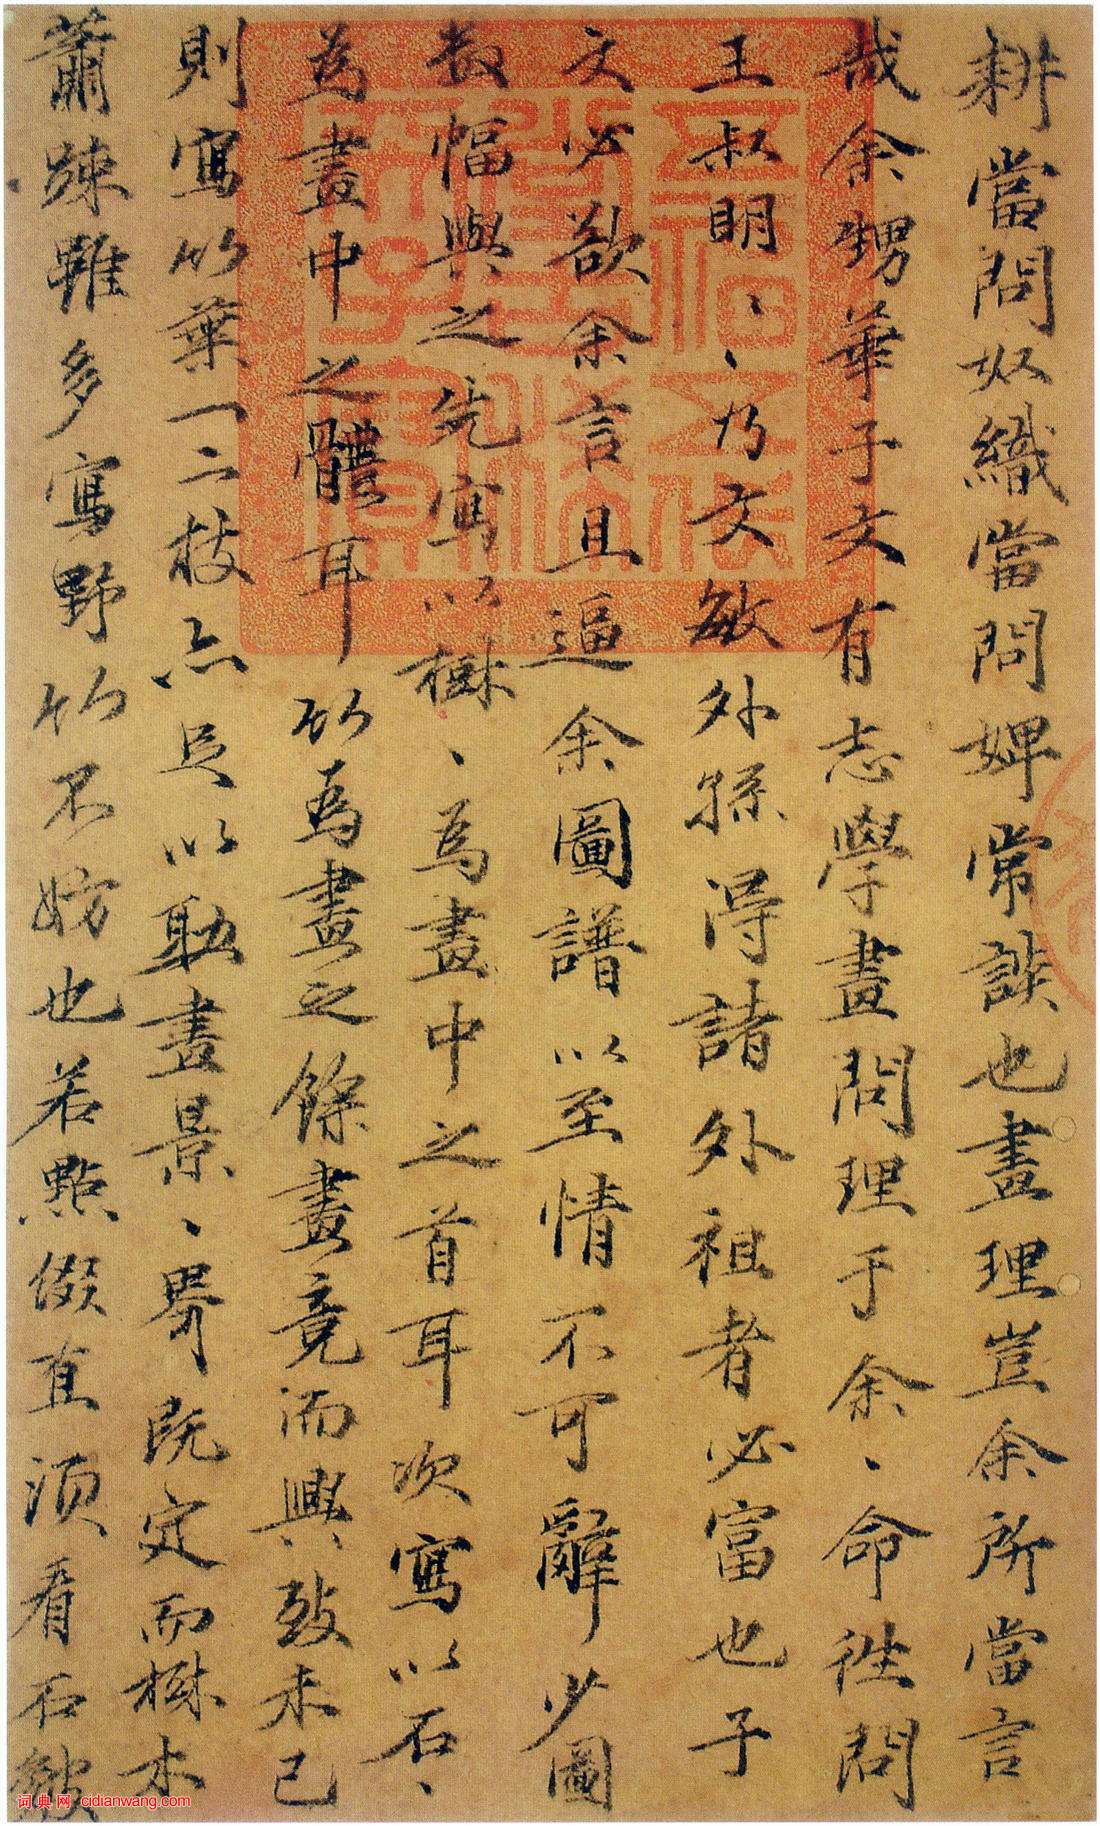 耕當問奴織當問婢常談也畫理豈余所當言
哉余甥華子文有志學畫問理于余、命往問
王叔明、、乃文敏外孫得諸外祖者必富也子
文必欲余言且逼余圖譜以至情不可辭少圖
數幅與之先寫以樹、為畫中之首耳次寫以石、
為畫中之體耳竹為畫之餘畫竟而興致未已
則寫竹葉一二枝亦足以助畫景、界既定而樹木
蕭踈雖多寫野竹不妨也若點綴直須看石皴
五福五代堂古稀天子寶
词典网 cidianwang.com